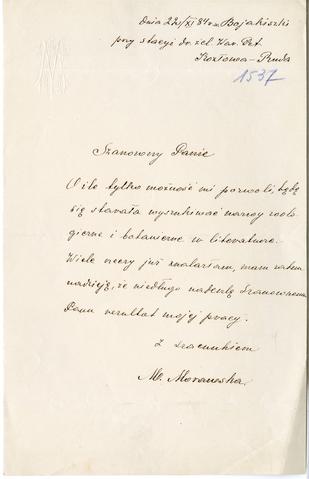 Dnia 22/XI 84 r. w Bojakiszki
przy stacyi dr. żel. War. Pet.
Kozłowa-Ruda
1537
Szanowny Panie
O ile tylko możność mi pozwoli, będę
się starała wyszukiwać nazwy zoolo-
giczne i botaniczne w literaturze.
Wiele rzeczy już znalazłam, mam zatem
nadzieję, że niedługo nadeślę Szanownemu
Panu rezultat mojej pracy.
Z szacunkiem
M. Morawska